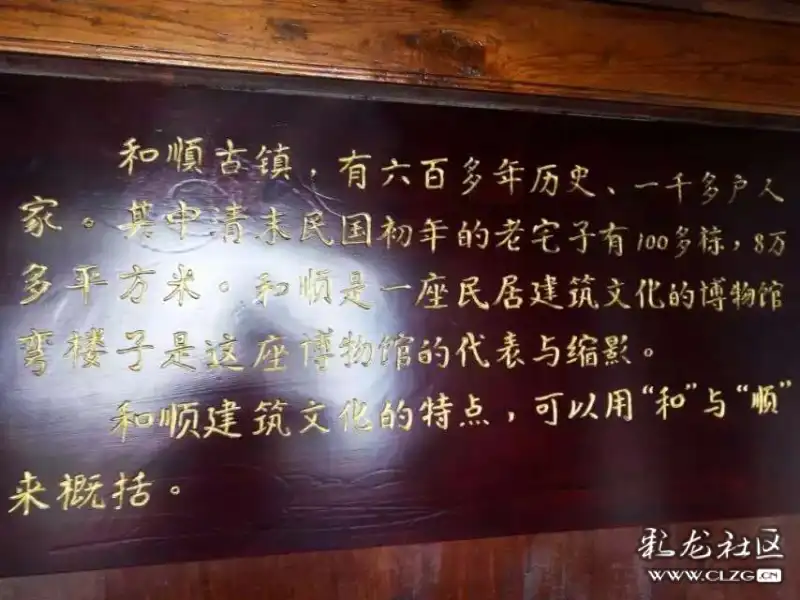 和順古镇，有六百多年历史、一千多户人
家。其中清末民国初年的老宅子有100多栋，8万
多平方米。和顺是一座民居建筑文化的博物馆
弯楼子是这座博物馆的代表与缩影。
和顺建筑文化的特点，可以用“和”与“顺”
来概括。
彩龙社区
WWW.CLZG.CN